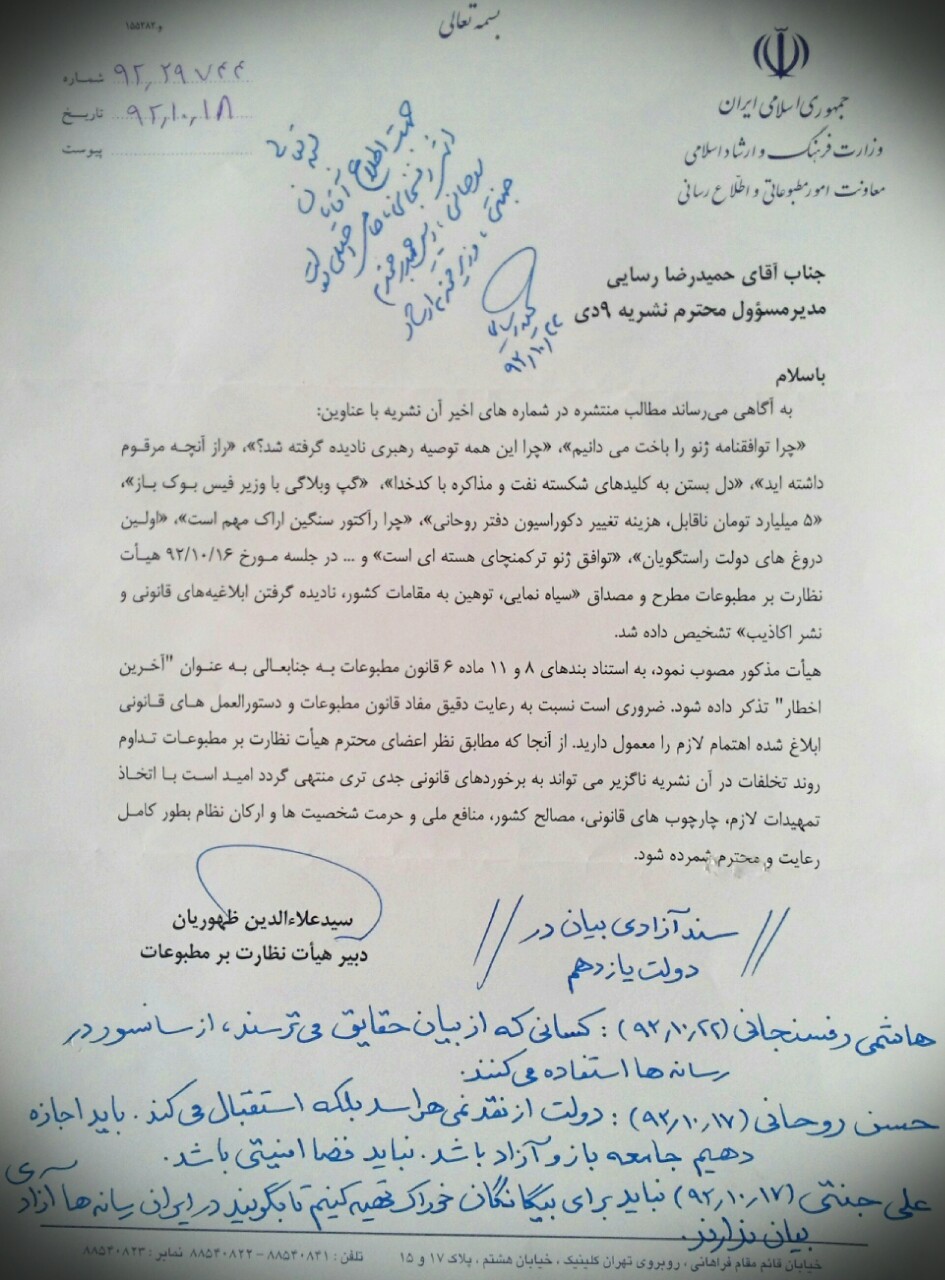 بسمه تعالی
و ۱۵۵۲۸۲
شماره ۹۲٫۲۹۷۴۴
تاریخ ۹۲٫۱۰٫۱۸
پیوست
جمهوری اسلامی ایران
وزارت فرهنگ و ارشاد اسلامی
معاونت امور مطبوعاتی و اطلاع رسانی
جهت اطلاع آقایان
هاشمی رفسنجانی،
روحانی، رییس جمهور محترم
جنتی، وزیر محترم ارشاد
۹۲/۱۰/۲۲
جناب آقای حمیدرضا رسایی
مدیرمسؤول محترم نشریه ۹دی
باسلام
به آگاهی می‌رساند مطالب منتشره در شماره های اخیر آن نشریه با عناوین:
«چرا توافقنامه ژنو را باخت می دانیم»، «چرا این همه توصیه رهبری نادیده گرفته شد؟»، «راز آنچـه مرقـوم
داشته اید»، «دل بستن به کلیدهای شکسته نفت و مذاکره با کدخدا»، «گپ وبلاگی با وزیر فیس بـوک بـاز»،
«۵ میلیارد تومان ناقابل، هزینه تغییر دکوراسیون دفتر روحانی»، «چرا رآکتور سنگین اراک مهم است»، «اولـین
دروغ های دولت راستگویان»، «توافق ژنو ترکمنچای هسته ای است» و ... در جلسه مـورخ ۹۲/۱۰/۱۶ هیـأت
نظارت بر مطبوعات مطرح و مصداق «سیاه نمایی، توهین به مقامات کشور، نادیده گرفتن ابلاغیه‌های قانونی و
نشر اکاذیب» تشخیص داده شد.
هیأت مذکور مصوب نمود، به استناد بندهای ۸ و ۱۱ ماده ۶ قانون مطبوعات بـه جنابعـالی بـه عنـوان "آخـرین
اخطار" تذکر داده شود. ضروری است نسبت به رعایت دقیق مفاد قانون مطبوعات و دستورالعمل هـای قـانونی
ابلاغ شده اهتمام لازم را معمول دارید. از آنجا که مطابق نظر اعضای محترم هیأت نظارت بر مطبوعـات تـداوم
روند تخلفات در آن نشریه ناگزیر می تواند به برخوردهای قانونی جدی تری منتهی گردد امیـد اسـت بـا اتخـاذ
تمهیدات لازم، چارچوب های قانونی، مصالح کشور، منافع ملی و حرمت شخصیت ها و ارکان نظام بطور کامـل
رعایت و محترم شمرده شود.
سیدعلاءالدین ظهوریان
دبیر هیأت نظارت بر مطبوعات
سند آزادی بیان در
دولت یازدهم
هاشمی رفسنجانی (۹۲٫۱۰٫۲۲) : کسانی که از بیان حقایق می‌ترسند، از سانسور در
رسانه ها استفاده می‌کنند.
حسن روحانی (۹۲٫۱۰٫۱۷) : دولت از نقد نمی‌هراسد بلکه استقبال می‌کند. باید اجازه
دهیم جامعه باز و آزاد باشد. نباید فضا امنیتی باشد.
علی جنتی (۹۲٫۱۰٫۱۷) نباید برای بیگانگان خوراک تهیه کنیم تا بگویند در ایران رسانه ها آزادی
بیان ندارند.
خیابان قائم مقام فراهانی ، روبروی تهران کلینیک ، خیابان هشتم ، پلاک ۱۷ و ۱۵ تلفن : ۸۸۵۴۰۸۴۱ - ۸۸۵۴۰۸۲۲ نمابر : ۸۸۵۴۰۸۲۳